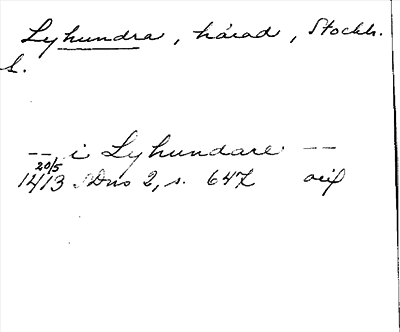 Lyhundra, härad, Stockh.
L.
-- i Lyhundare --
20/5
1413 SDns 2, s. 647